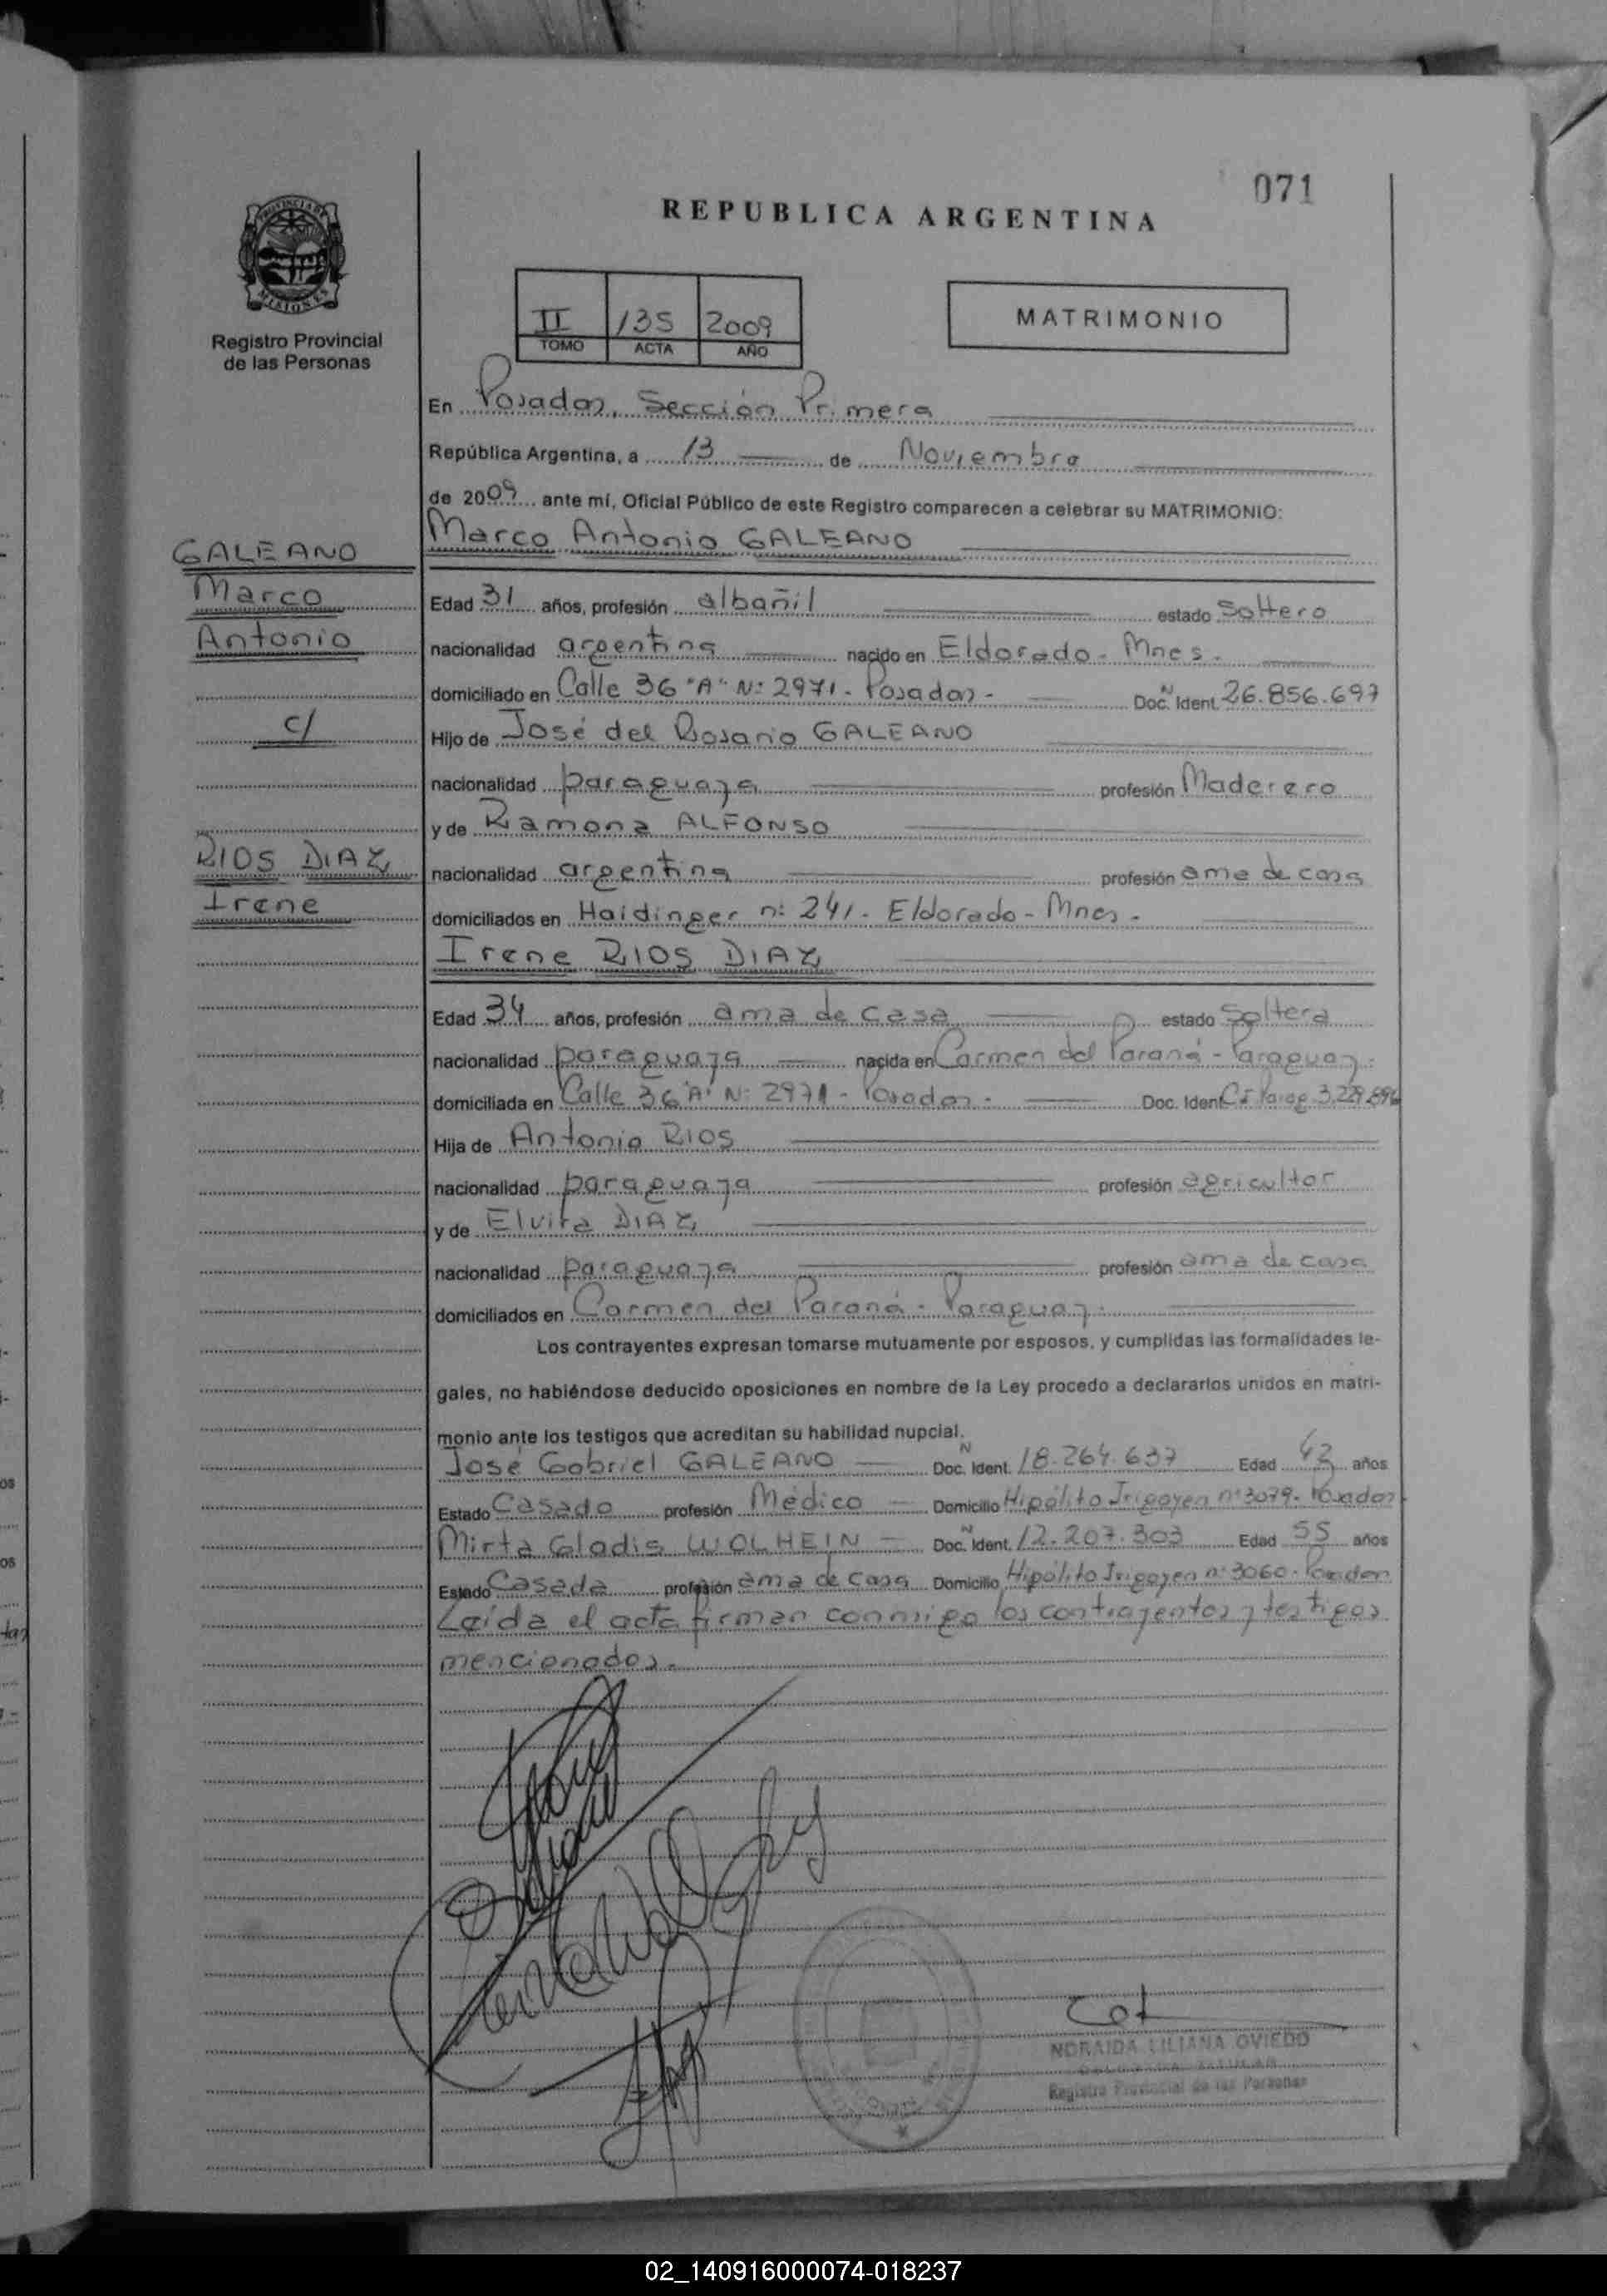 071
REPUBLICA ARGENTINA
PROVINCIA DE
MISIONES
Registro Provincial
de las Personas
II 135 2009
TOMO ACTA AÑO
MATRIMONIO
En Posadas, Sección Primera
República Argentina, a 13 de Noviembre
de 2009 ante mí, Oficial Público de este Registro comparecen a celebrar su MATRIMONIO:
Marco Antonio GALEANO
GALEANO
Marco
Antonio
c/
RIOS DIAZ
Irene
Edad 31 años, profesión albañil estado Soltero
nacionalidad argentina nacido en Eldorado - Mnes.
domiciliado en Calle 36 "A" Nº 2971 - Posadas - Doc. N Ident. 26.856.697
Hijo de José del Rosario GALEANO
nacionalidad paraguaya profesión Maderero
y de Ramona ALFONSO
nacionalidad argentina profesión ama de casa
domiciliados en Haidinger nº 241 - Eldorado - Mnes -
Irene RIOS DIAZ
Edad 34 años, profesión ama de casa estado Soltera
nacionalidad paraguaya nacida en Carmen del Paraná - Paraguay.
domiciliada en Calle 36 "A" Nº 2971 - Posadas - Doc. Ident. C.I. Parag.
Hija de Antonio RIOS
nacionalidad paraguaya profesión agricultor
y de Elvira DIAZ
nacionalidad paraguaya profesión ama de casa
domiciliados en Carmen del Paraná - Paraguay.
Los contrayentes expresan tomarse mutuamente por esposos, y cumplidas las formalidades le-
gales, no habiéndose deducido oposiciones en nombre de la Ley procedo a declararlos unidos en matri-
monio ante los testigos que acreditan su habilidad nupcial.
José Gabriel GALEANO Doc. N Ident. 18.264.637 Edad 42 años
Estado Casado profesión Médico Domicilio Hipólito Irigoyen nº 3079 - Posadas -
Mirta Gladis WOLHEIN Doc. N Ident. 12.207.303 Edad 55 años
Estado Casada profesión ama de casa Domicilio Hipólito Irigoyen nº 3060 - Posadas
Leída el acta firman conmigo los contrayentes y testigos
mencionados.
NORAIDA LILIANA OVIEDO
Registro Provincial de las Personas
02_140916000074-018237